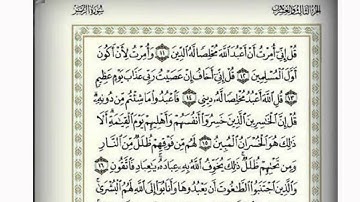 الجزء الثالث والعشرون
سورة الزمر
قُلْ إِنِّي أُمِرْتُ أَنْ أَعْبُدَ اللَّهَ مُخْلِصًا لَّهُ الدِّينَ ١١ وَأُمِرْتُ لِأَنْ أَكُونَ
أَوَّلَ الْمُسْلِمِينَ ١٢ قُلْ إِنِّي أَخَافُ إِنْ عَصَيْتُ رَبِّي عَذَابَ يَوْمٍ عَظِيمٍ
١٣ قُلِ اللَّهَ أَعْبُدُ مُخْلِصًا لَّهُ دِينِي ١٤ فَاعْبُدُوا مَا شِئْتُم مِّن دُونِهِ
قُلْ إِنَّ الْخَاسِرِينَ الَّذِينَ خَسِرُوا أَنفُسَهُمْ وَأَهْلِيهِمْ يَوْمَ الْقِيَامَةِ أَلَا
ذَٰلِكَ هُوَ الْخُسْرَانُ الْمُبِينُ ١٥ لَهُم مِّن فَوْقِهِمْ ظُلَلٌ مِّنَ النَّارِ
وَمِن تَحْتِهِمْ ظُلَلٌ ذَٰلِكَ يُخَوِّفُ اللَّهُ بِهِ عِبَادَهُ يَا عِبَادِ فَاتَّقُونِ ١٦
وَالَّذِينَ اجْتَنَبُوا الطَّاغُوتَ أَن يَعْبُدُوهَا وَأَنَابُوا إِلَى اللَّهِ لَهُمُ الْبُشْرَىٰ